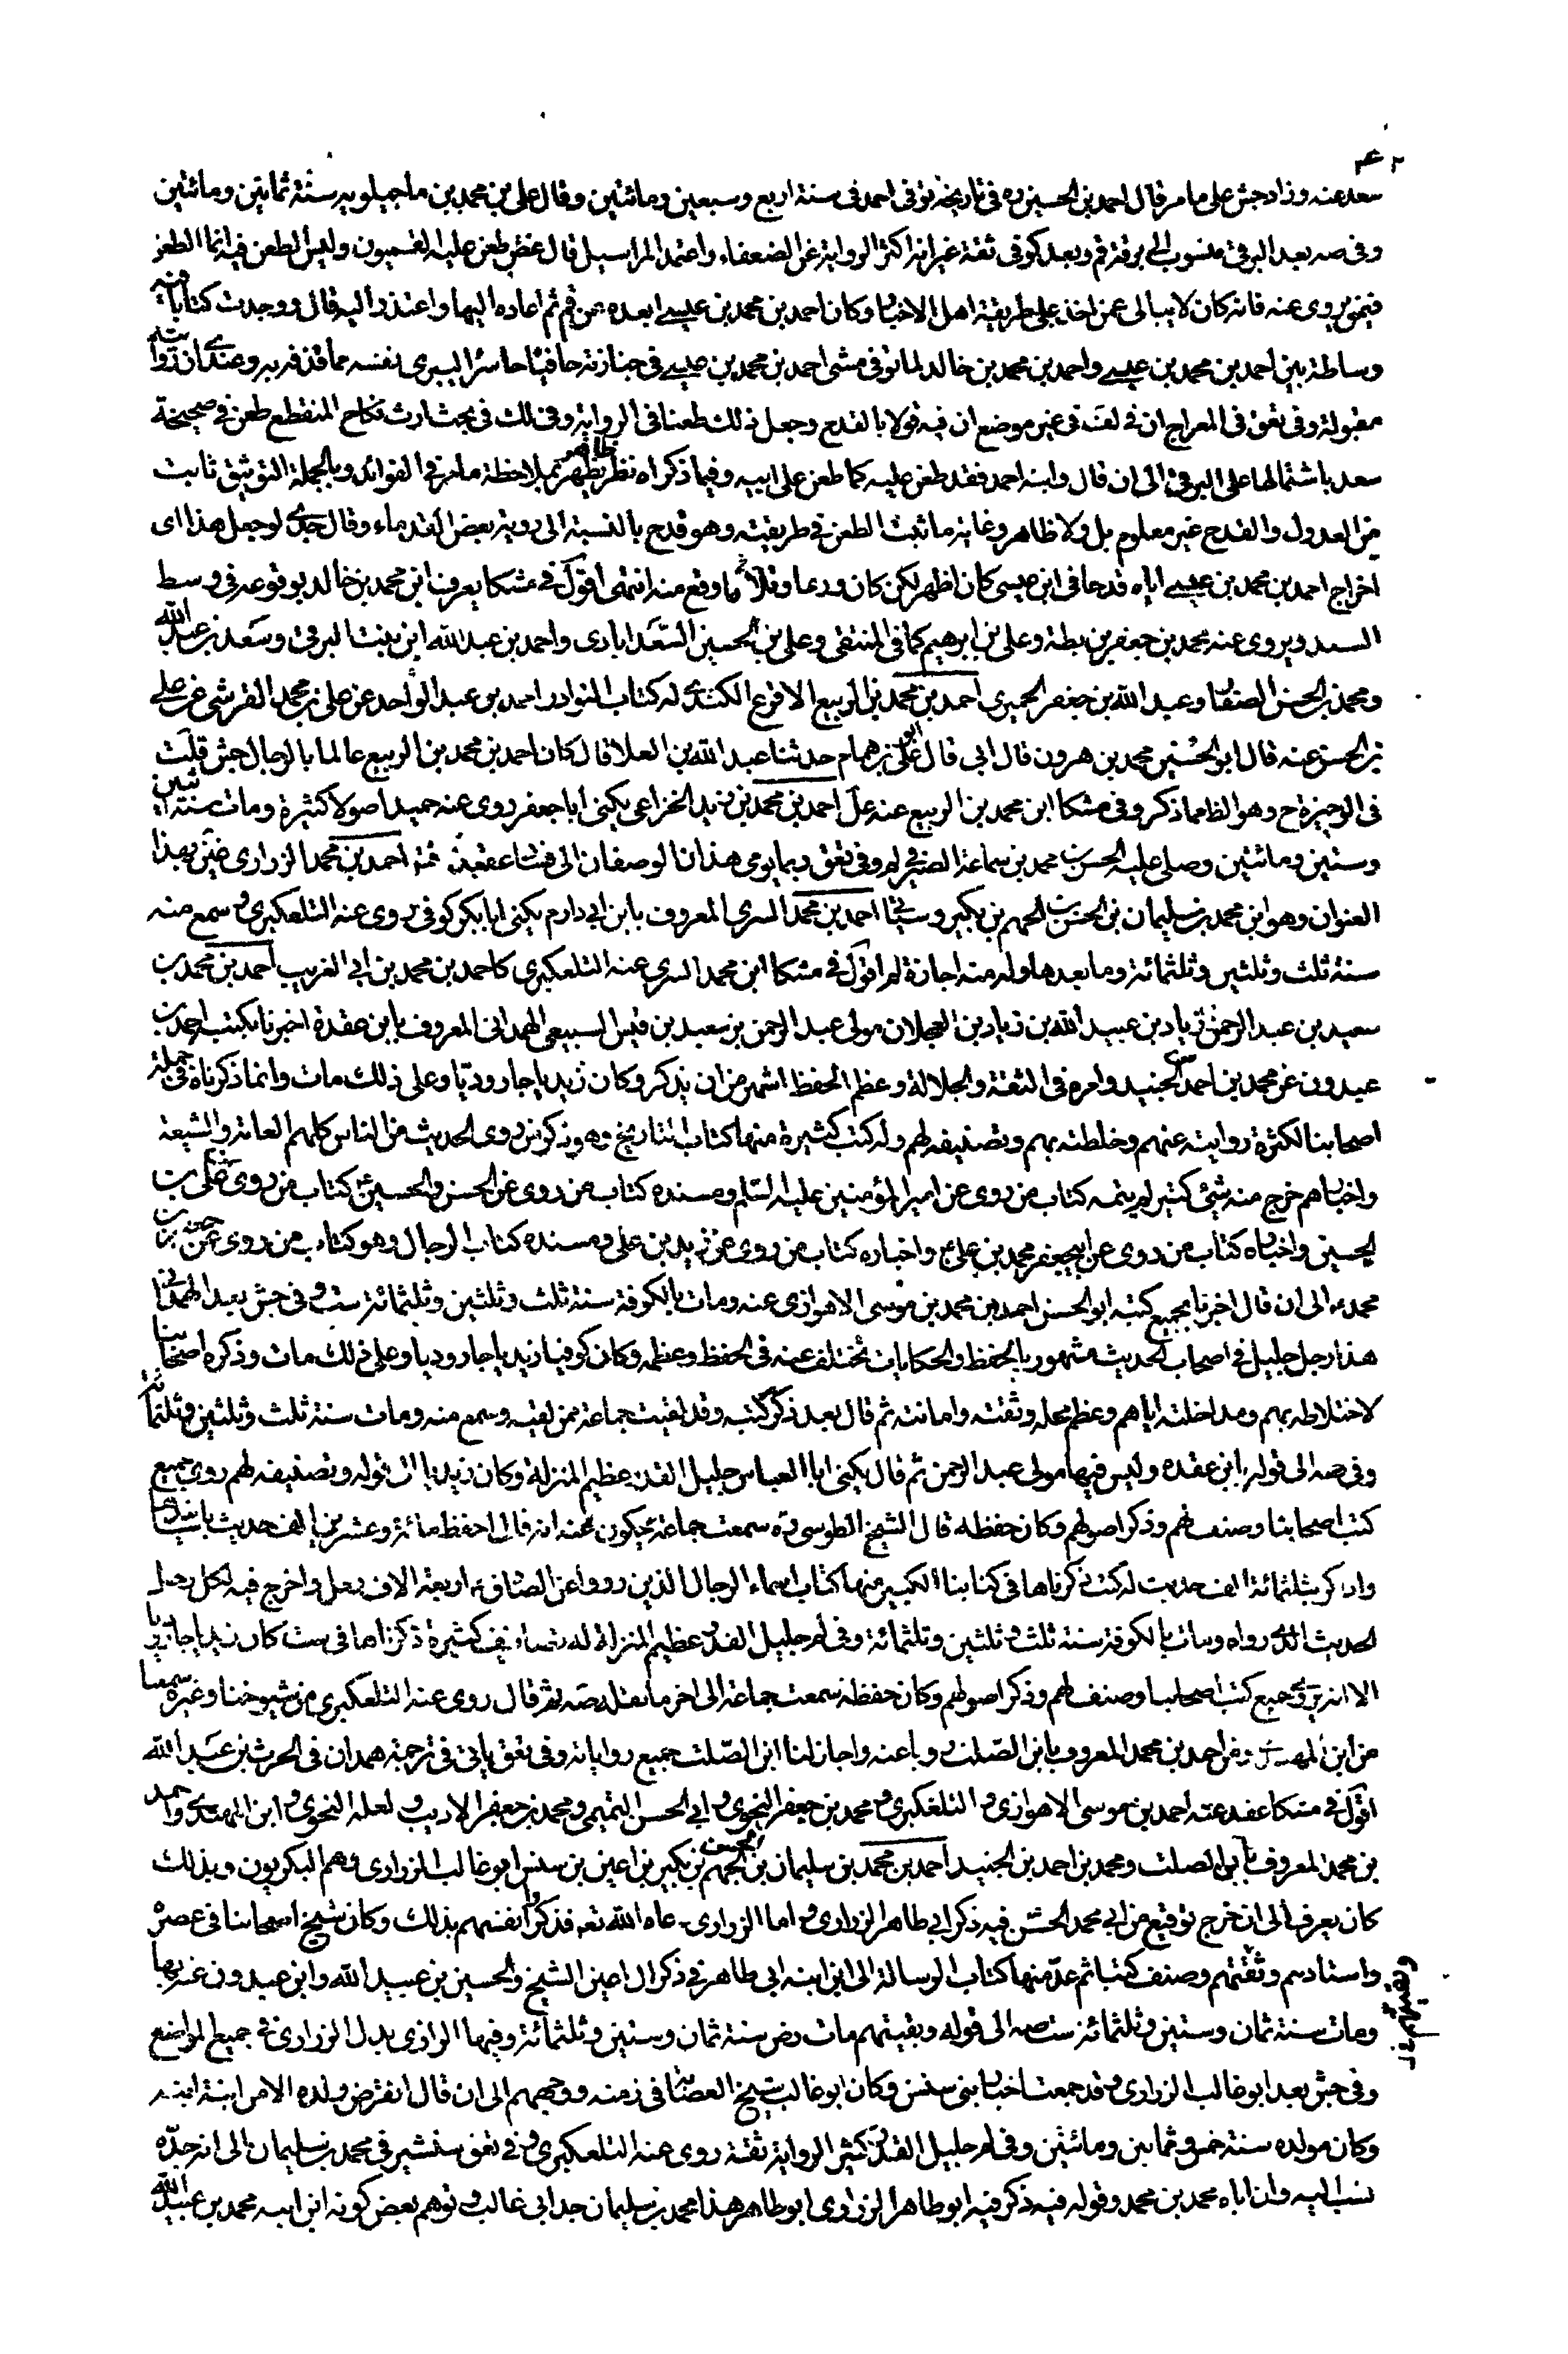 ٤٢
سعد عنه وزاد جش على ما مر قال احمد بن الحسين ره فى تاريخه توفى احمد فى سنة اربع وسبعين ومائتين وقال على بن محمد بن ماجيلويه سنة ثمانين ومائتين
وفى صه بعد البرقى منسوب الى برقة قم وبعد كوفى ثقة غير انه اكثر الرواية عن الضعفاء واعتمد المراسيل قال غض طعن عليه القميون وليس الطعن فيه انما الطعن
فيمن يروى عنه فانه كان لا يبالى عمن اخذ على طريقة اهل الاخبار وكان احمد بن محمد بن عيسى ابعده عن قم ثم اعاده اليها واعتذر اليه قال ووجدت كتابا فيه
وساطة بين احمد بن محمد بن عيسى واحمد بن محمد بن خالد لما توفى مشى احمد بن محمد بن عيسى فى جنازته حافيا حاسرا ليبرى نفسه مما قذفه به وعندى ان روايته
مقبولة وفى تعق فى المعراج ان فى لف فى غير موضع ان فيه قولا بالقدح وجعل ذلك طعنا فى الرواية وفى لك فى بحث ارث نكاح المنقطع طعن فى صحيحة
سعد باشتمالها على البرقى الى ان قال وابنه احمد فقد طعن عليه كما طعن على ابيه وفيما ذكراه نظر ظاهر يظهر بملاحظة ما مر فى الفوائد وبالجملة التوثيق ثابت
من العدول والقدح غير معلوم بل ولا ظاهر وغاية ما ثبت الطعن فى طريقته وهو قدح بالنسبة الى روية بعض القدماء وقال جدى لو جعل هذا اى
اخراج احمد بن محمد بن عيسى اياه قدحا فى ابن عيسى كان اظهر لكن كان ورعا وتلافى ما وقع منه انتهى اقول فى مشكا يعرف ابن محمد بن خالد بوقوعه فى وسط
السند ويروى عنه محمد بن جعفر بن بطة وعلى بن ابرهيم كما فى المنتقى وعلى بن الحسين السعدابادى واحمد بن عبد الله ابن بنت البرقى وسعد بن عبد الله
ومحمد بن الحسن الصفار وعبد الله بن جعفر الحميرى احمد بن محمد بن الربيع الاقرع الكندى له كتاب النوادر احمد بن عبد الواحد عن على بن محمد القرشى عن على
بن الحسن عنه قال ابو الحسين محمد بن هرون قال ابى قال ابو على بن همام حدثنا عبد الله بن العلا قال كان احمد بن محمد بن الربيع عالما بالرجال جش قلت
فى الوجيزة ح وهو الظ مما ذكر وفى مشكا ابن محمد بن الربيع عنه على احمد بن محمد بن زيد الخزاعى يكنى ابا جعفر روى عنه حميد اصولا كثيرة ومات سنة اثنين
وستين ومائتين وصلى عليه الحسن بن محمد بن سماعة الصيرفى لم وفى تعق ربما يومى هذان الوصفان الى احمد بن محمد الزرارى ضين بهذا
العنوان وهو ابن محمد بن سليمان بن الحسن بن الجهم بن بكير وسياتى احمد بن محمد السرى المعروف بابن ابى دارم يكنى ابا بكر كوفى روى عنه التلعكبرى و سمع منه
سنة ثلث وثلثين وثلثمائة وما بعدها وله منه اجازة لم اقول فى مشكا ابن محمد السرى عنه التلعكبرى كاحمد بن محمد بن ابى الغريب احمد بن محمد بن
سعيد بن عبد الرحمن بن زياد بن عبيد الله بن زياد بن العجلان مولى عبد الرحمن بن سعيد بن قيس السبيعى الهمدانى المعروف بابن عقدة اخبرنا بكتبه احمد بن
عبدون عن محمد بن احمد بن الجنيد وامره فى الثقة والجلالة وعظم الحفظ اشهر من ان يذكر وكان زيديا جاروديا وعلى ذلك مات وانما ذكرناه فى جملة
اصحابنا لكثرة روايته عنهم وخلطته بهم وتصنيفه لهم وله كتب كثيرة منها كتاب التاريخ وهو ذكر من روى الحديث من الناس كلهم العامة والشيعة
واخبارهم خرج منه شئ كثير لم يتمه كتاب من روى عن امير المؤمنين عليه السلم ومسنده كتاب من روى عن الحسن والحسين ع كتاب من روى عن على بن
الحسين واخباره كتاب من روى عن ابى جعفر محمد بن على ع واخباره كتاب من روى عن زيد بن على ومسنده كتاب الرجال وهو كتاب من روى عن جعفر بن
محمد ع الى ان قال اخبرنا بجميع كتبه ابو الحسن احمد بن محمد بن موسى الاهوازى عنه ومات بالكوفة سنة ثلث وثلثين وثلثمائة ست وفى جش بعد الهمدانى
هذا رجل جليل فى اصحاب الحديث مشهور بالحفظ والحكايات تختلف عنه فى الحفظ وعظمه وكان كوفيا زيديا جاروديا وعلى ذلك مات وذكره اصحابنا
لاختلاطه بهم ومداخلته اياهم وعظم محله وثقته وامانته ثم قال بعد ذكر كتبه وقد لقيت جماعة ممن لقيه وسمع منه ومات سنة ثلث وثلثين وثلثمائة
وفى صه الى قوله ابن عقده وليس فيها مولى عبد الرحمن ثم قال يكنى ابا العباس جليل القدر عظيم المنزلة وكان زيديا الى قوله وتصنيفه لهم روى جميع
كتب اصحابنا وصنف لهم وذكر اصولهم وكان حفظه قال الشيخ الطوسى ره سمعت جماعة يحكون عنه انه قال احفظ مائة وعشرين الف حديث باسانيدها
واذاكر بثلثمائة الف حديث له كتب ذكرناها فى كتابنا الكبير منها كتاب اسماء الرجال الذين رووا عن الصادق ع اربعة الاف رجل واخرج فيه لكل رجل
الحديث الذى رواه ومات بالكوفة سنة ثلث وثلثين وثلثمائة وفى لم جليل القدر عظيم المنزلة له تصانيف كثيرة ذكرناها فى ست كان زيديا جاروديا
الا انه روى جميع كتب اصحابنا وصنف لهم وذكر اصولهم وكان حفظة سمعت جماعة الى اخر ما نقله صه ثم قال روى عنه التلعكبرى من شيوخنا وغيره سمعنا
من ابن المهتدى ومن احمد بن محمد المعروف بابن الصلت روبا عنه واجاز لنا ابن الصلت جميع رواياته وفى تعق ياتى فى ترجمة همدان فى الحرث بن عبد الله
اقول فى مشكا عقد عنه احمد بن موسى الاهوازى و التلعكبرى و محمد بن جعفر النحوى و ابى الحسن التميمى ومحمد بن جعفر الاديب و لعله النحوى و ابن المهتدى واحمد
بن محمد المعروف بابن الصلت ومحمد بن احمد بن الجنيد احمد بن محمد بن سليمان بن الحسن بن الجهم بن بكير بن اعين بن سنسن ابو غالب الزرارى وهم البكريون وبذلك
كان يعرف الى ان خرج توقيع من ابى محمد الحسن فيه ذكر ابى طاهر الزرارى و اما الزرارى رعاه الله تعه فذكروا انفسهم بذلك وكان شيخ اصحابنا فى عصره
واستادهم وثقتهم وصنف كتبا ثم عد منها كتاب الرسالة الى ابن ابنه ابى طاهر فى ذكر ال اعين الشيخ والحسين بن عبيد الله وابن عبدون عنه بها
ومات سنة ثمان وستين وثلثمائة ست صه الى قوله وبقيتهم مات رض سنة ثمان وستين وثلثمائة وفيها الرازى بدل الزرارى فى جميع المواضع
وفى جش بعد ابو غالب الزرارى و قد جمعت اخبار بنى سنسن وكان ابو غالب شيخ العصابة فى زمنه ووجههم الى ان قال انقرض ولده الا من ابنة ابنه
وكان مولده سنة خمس وثمانين ومائتين وفى لم جليل القدر كثير الرواية ثقة روى عنه التلعكبرى و فى تعق سنشير فى محمد بن سليمان الى انه جده
نسب اليه وان اباه محمد بن محمد وقوله فيه ذكر فيه ابو طاهر الزرارى ابو طاهر هذا محمد بن سليمان جد ابى غالب و توهم بعض كونه ابن ابنه محمد بن عبيد الله